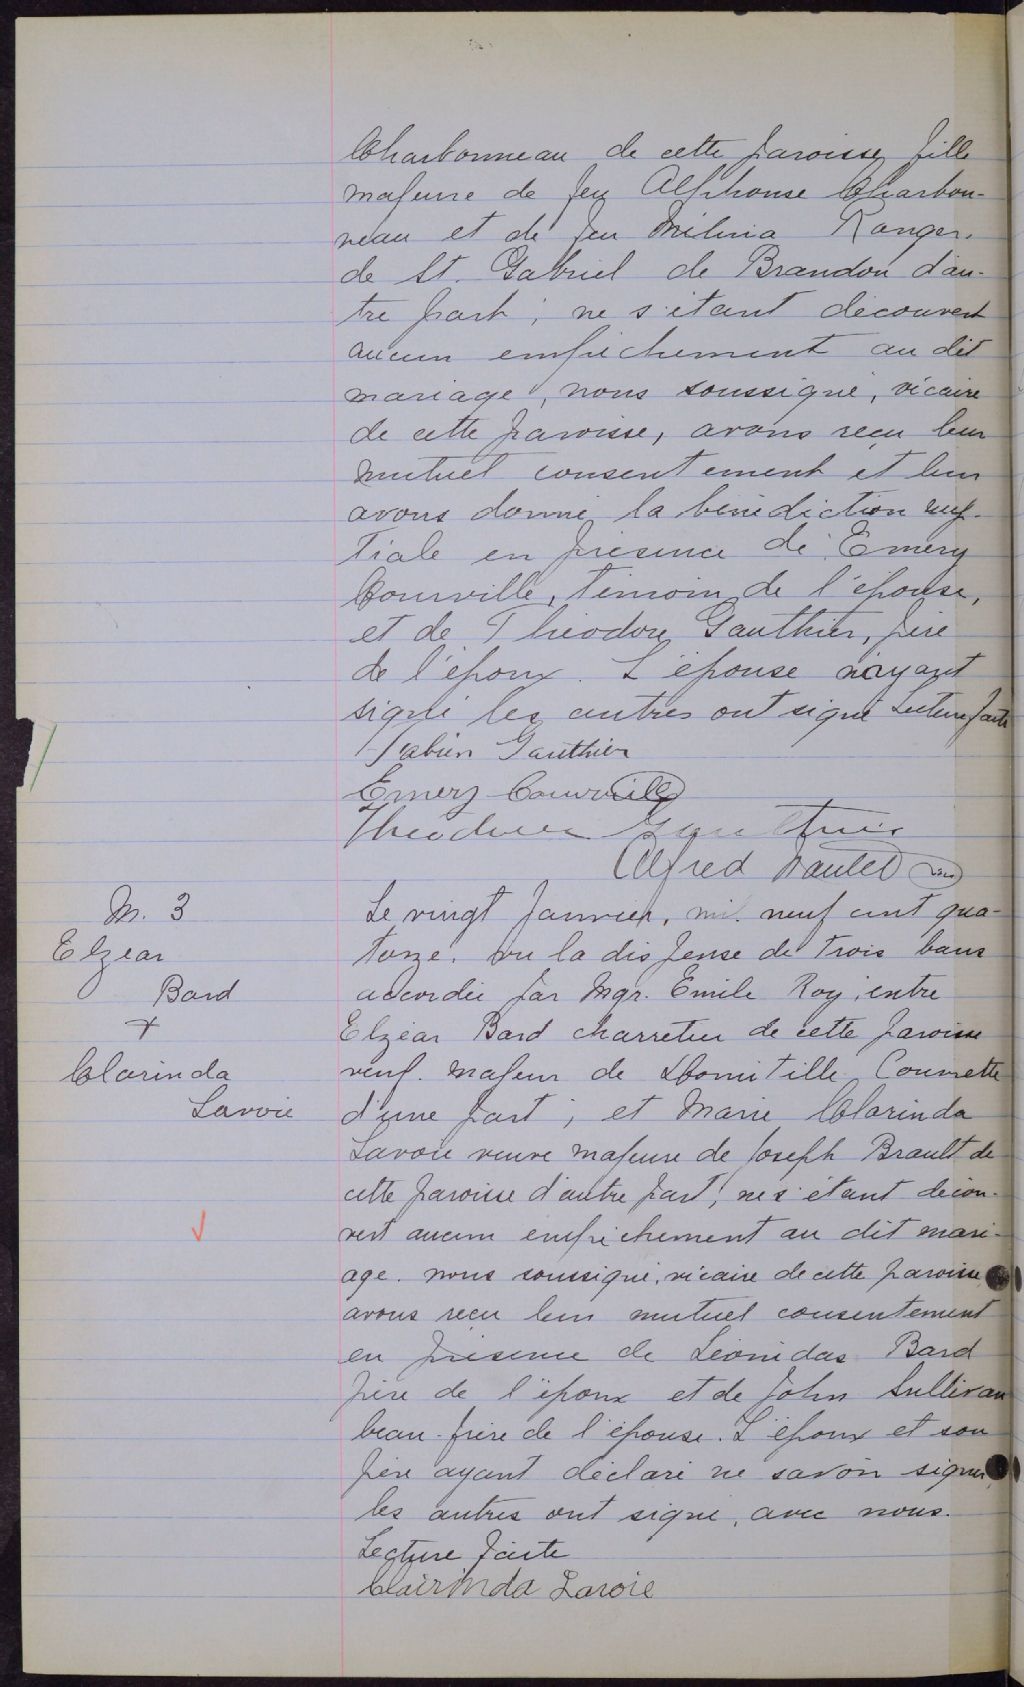 Charbonneau de cette paroisse, fille
majeure de feu Alphonse Charbon-
neau et de feu Mélina Ranger,
de St. Gabriel de Brandon d'au-
tre part ; ne s'étant découvert
aucun empêchement au dit
mariage, nous soussigné, vicaire
de cette paroisse, avons reçu leur
mutuel consentement et leur
avons donné la bénédiction nup-
tiale en présence de Emery
Courville, témoin de l'épouse,
et de Théodore Gauthier, père
de l'époux. L'épouse n'ayant
signé les autres ont signé Lecture faite
Fabien Gauthier
Emery Courville
Theodore Gauthier
Alfred Nantel vic.
M. 3
Elzear
Bard
+
Clarinda
Lavoie
Le vingt Janvier, mil neuf cent qua-
torze. vu la dispense de trois bans
accordée par Mgr. Emile Roy, entre
Elzéar Bard charretier de cette paroisse
veuf. majeur de Domitille Courvette
d'une part ; et Marie Clarinda
Lavoie veuve majeure de Joseph Brault de
cette paroisse d'autre part ; ne s'étant décou-
vert aucun empêchement au dit mari-
age. nous soussigné, vicaire de cette paroisse
avons reçu leur mutuel consentement
en présence de Léonidas Bard
père de l'époux et de John Sullivan
beau-frère de l'épouse. L'époux et son
père ayant déclaré ne savoir signer,
les autres ont signé, avec nous.
Lecture faite
Clairinda Lavoie